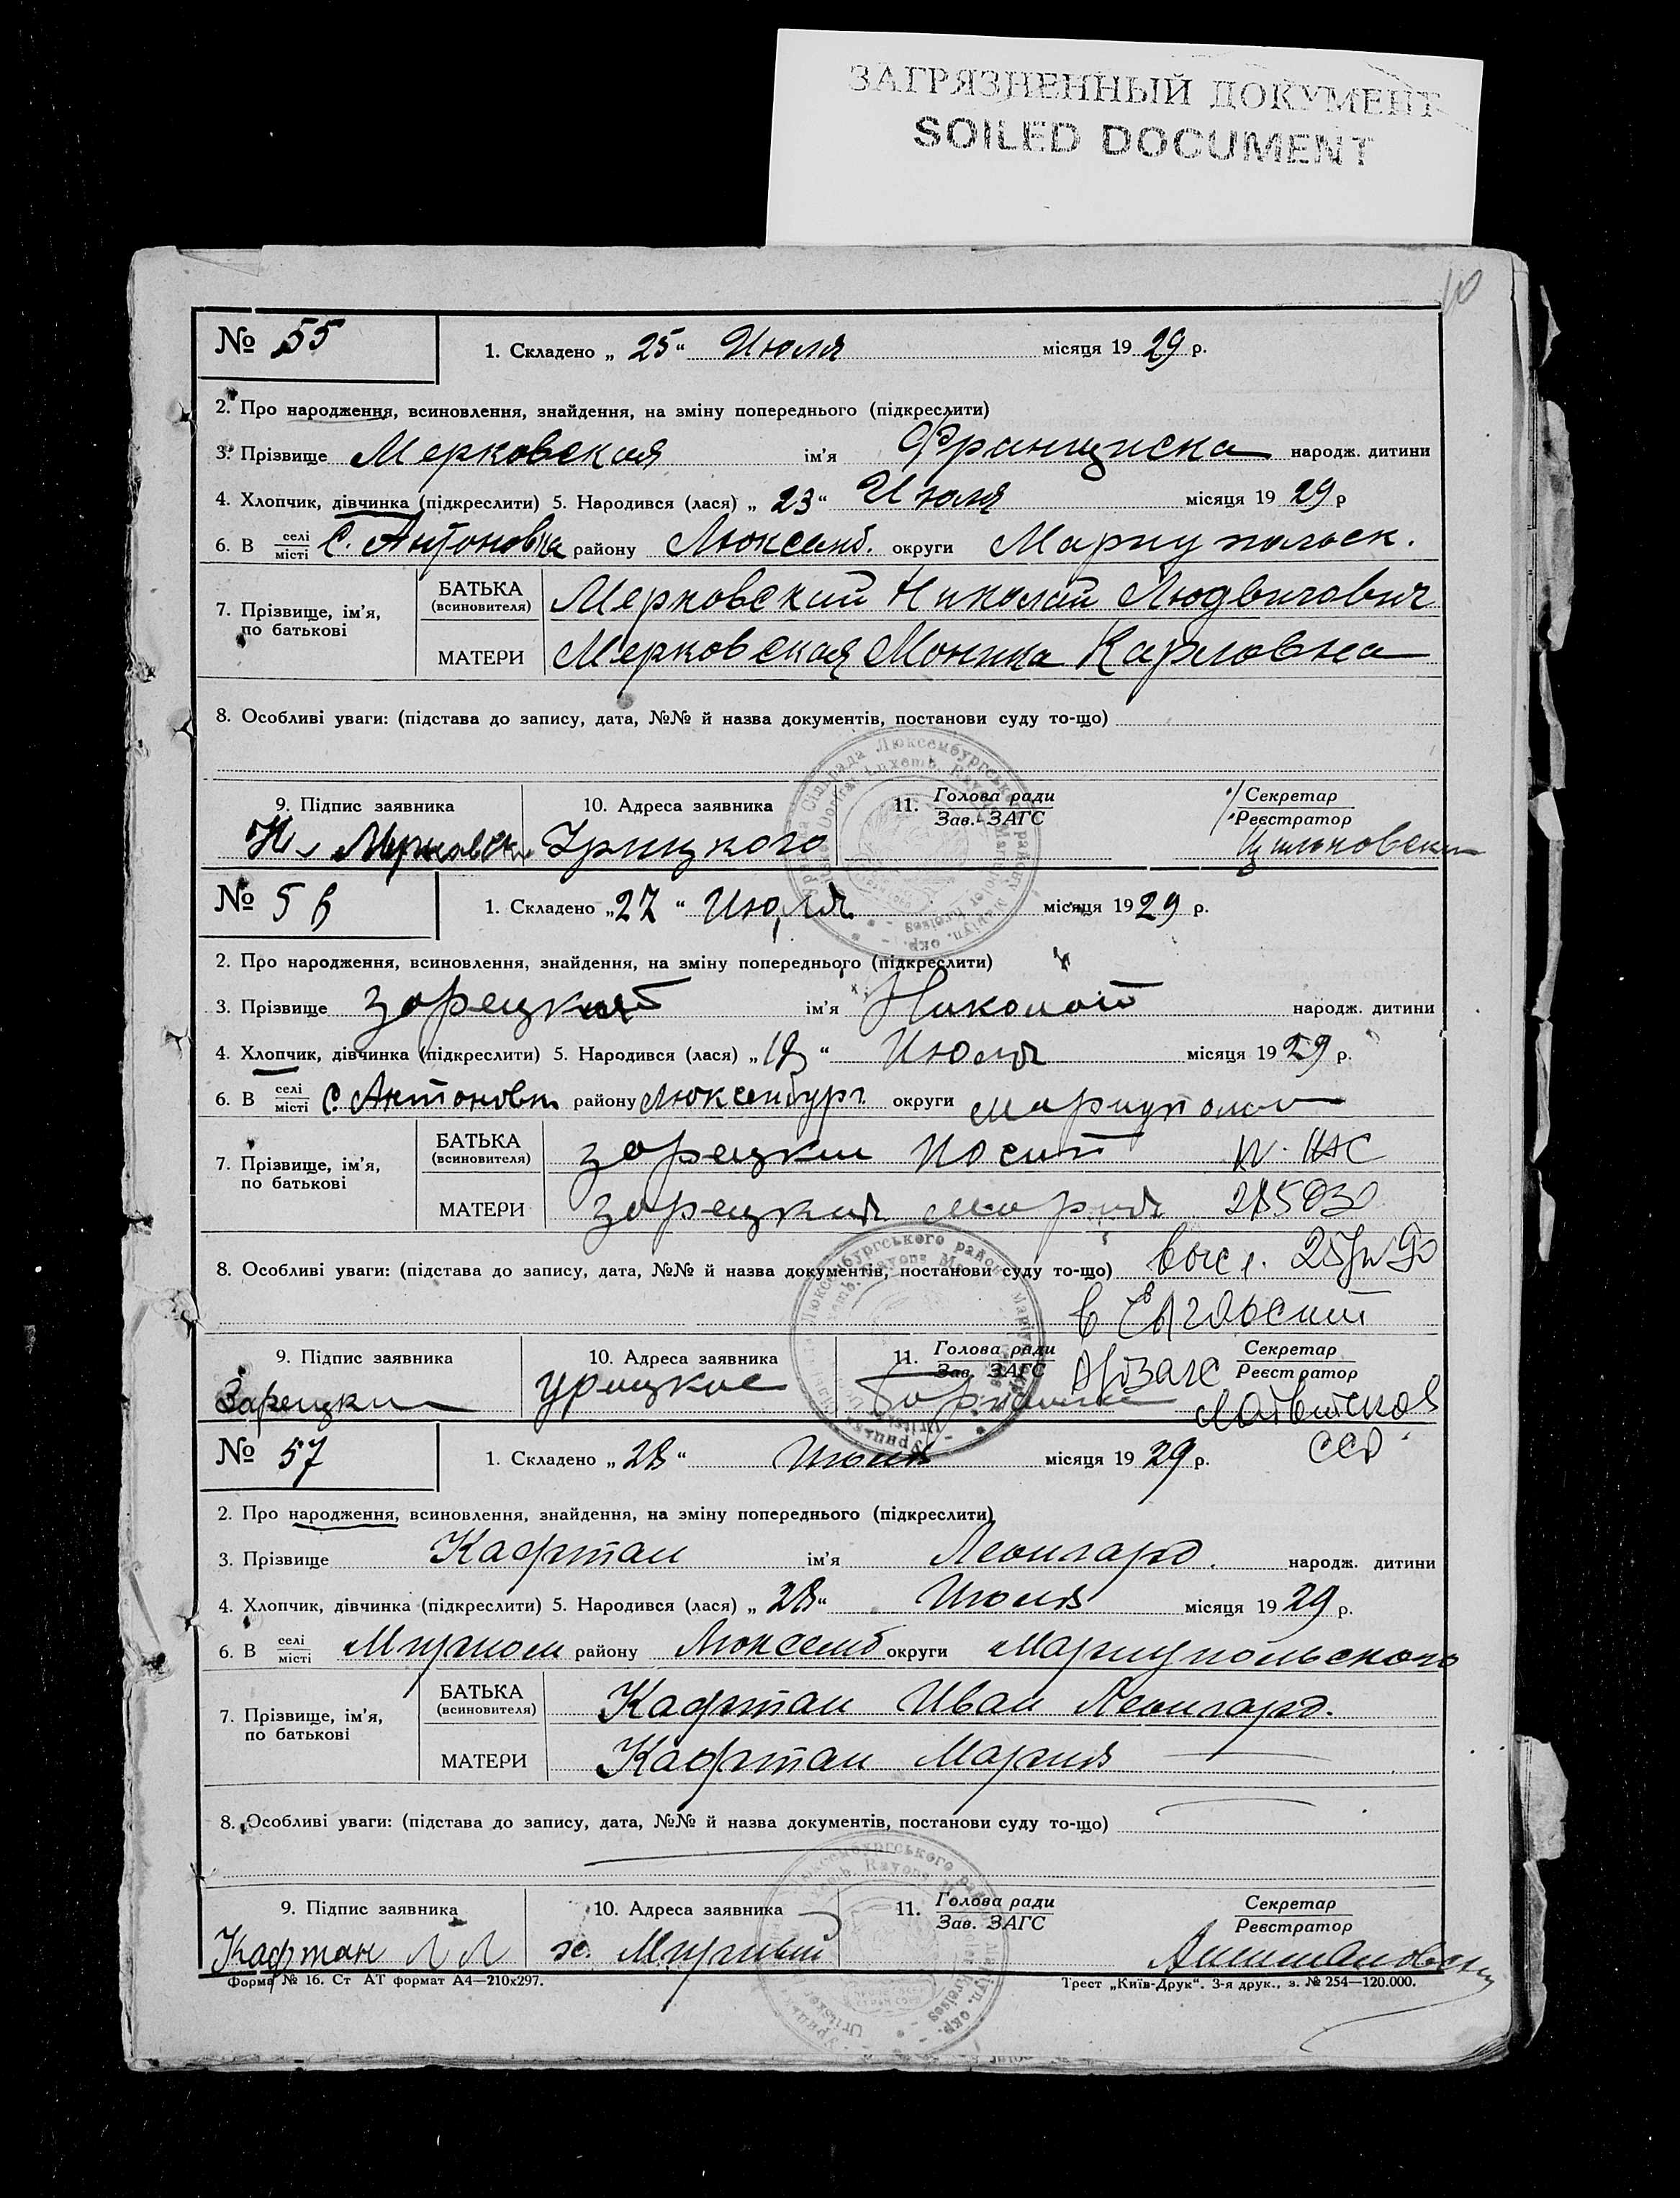 ЗАГРЯЗНЕННЫЙ ДОКУМЕНТ
SOILED DOCUMENT
10
№ 55
1. Складено „ 25 “ Июля місяця 19 29 р.
2. Про народження, всиновлення, знайдення, на зміну попереднього (підкреслити)
3. Прізвище Мерковская ім'я Франциска народж. дитини
4. Хлопчик, дівчинка (підкреслити) 5. Народився (лася) „ 23 “ Июля місяця 19 29 р
6. В селі місті с. Антоновка району Люксемб. округи Мариупольск.
7. Прізвище, ім'я, по батькові
БАТЬКА (всиновителя) Мерковский Николай Людвигович
МАТЕРИ Мерковская Моника Карловна
8. Особливі уваги: (підстава до запису, дата, №№ й назва документів, постанови суду то-що)
9. Підпис заявника 10. Адреса заявника 11. Голова ради Зав. ЗАГС Секретар Реєстратор
Н. Мерковски Урицкого
№ 56
1. Складено „ 27 “ Июля місяця 19 29 р.
2. Про народження, всиновлення, знайдення, на зміну попереднього (підкреслити)
3. Прізвище Зарецкий ім'я Николай народж. дитини
4. Хлопчик, дівчинка (підкреслити) 5. Народився (лася) „ “ Июля місяця 19 29 р.
6. В селі місті с. Антоновк району Люксембург. округи Мариупол
7. Прізвище, ім'я, по батькові
БАТЬКА (всиновителя) Зарецкий Иосип
МАТЕРИ Зарецкая Мария
8. Особливі уваги: (підстава до запису, дата, №№ й назва документів, постанови суду то-що)
в
9. Підпис заявника 10. Адреса заявника 11. Голова ради Зав. ЗАГС Секретар Реєстратор
Зарецки урицкое Латвийская
ССР
№ 57
1. Складено „ 28 “ Июля місяця 19 29 р.
2. Про народження, всиновлення, знайдення, на зміну попереднього (підкреслити)
3. Прізвище Кафтан ім'я Леонгард. народж. дитини
4. Хлопчик, дівчинка (підкреслити) 5. Народився (лася) „ 28 “ Июля місяця 19 29 р.
6. В селі місті Мирном району Люксемб округи Мариупольского
7. Прізвище, ім'я, по батькові
БАТЬКА (всиновителя) Кафтан Иван Леонгард.
МАТЕРИ Кафтан Мария
8. Особливі уваги: (підстава до запису, дата, №№ й назва документів, постанови суду то-що)
9. Підпис заявника 10. Адреса заявника 11. Голова ради Зав. ЗАГС Секретар Реєстратор
Кафтан Л Л х. Мирный
Форма № 16. Ст АТ формат А4—210х297. Трест „Київ-Друк“. 3-я друк., з. № 254—120.000.